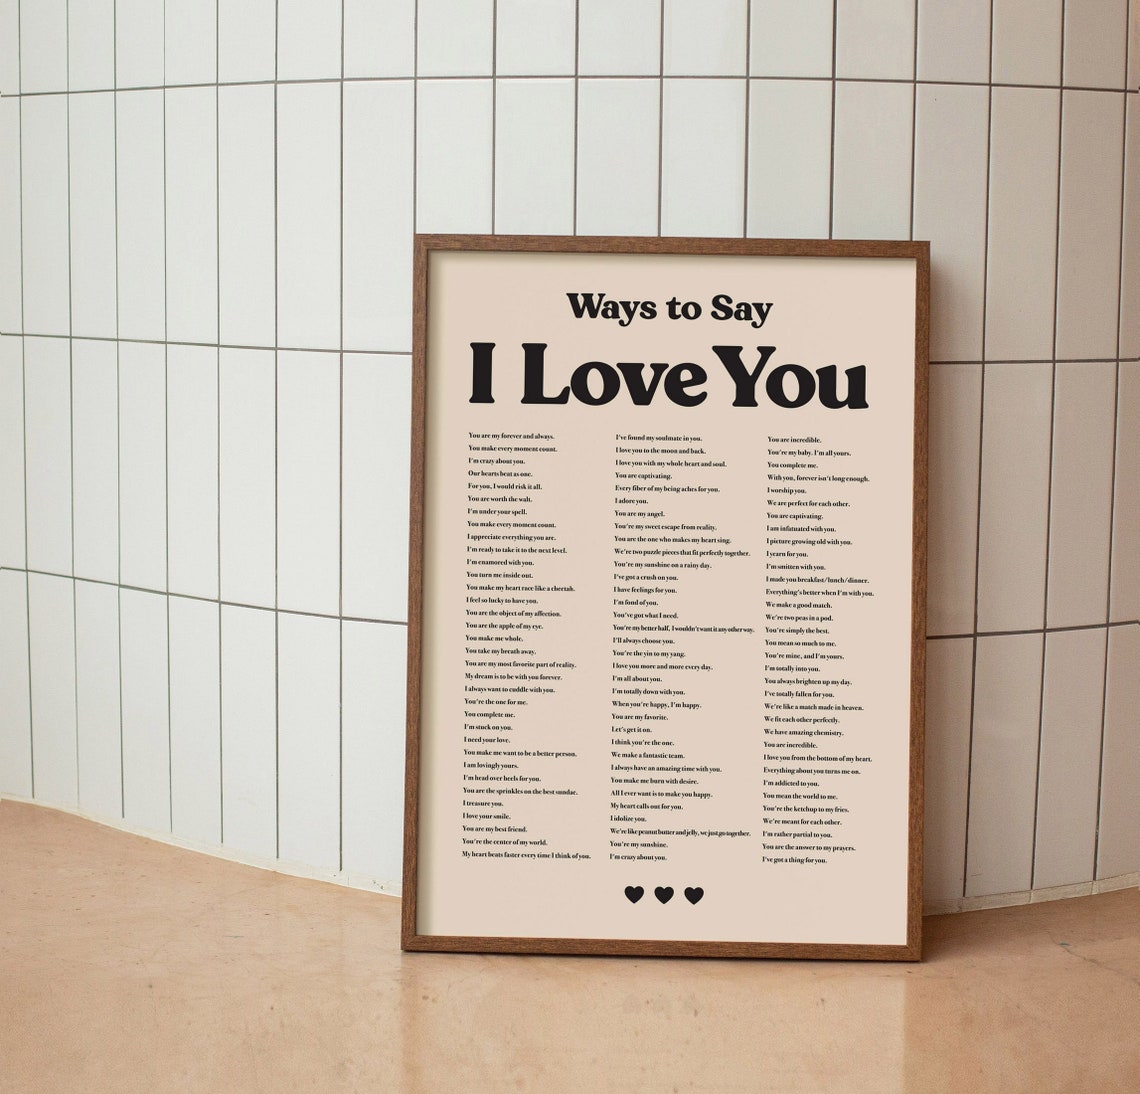 Ways to Say
I Love You
You are my forever and always.
You make every moment count.
I'm crazy about you.
Our hearts beat as one.
For you, I would risk it all.
You are worth the wait.
I'm under your spell.
You make every moment count.
I appreciate everything you are.
I'm ready to take it to the next level.
I'm enamored with you.
You turn me inside out.
You make my heart race like a cheetah.
I feel so lucky to have you.
You are the object of my affection.
You are the apple of my eye.
You make me whole.
You take my breath away.
You are my most favorite part of reality.
My dream is to be with you forever.
I always want to cuddle with you.
You're the one for me.
You complete me.
I'm stuck on you.
I need your love.
You make me want to be a better person.
I am lovingly yours.
I'm head over heels for you.
You are the sprinkles on the best sundae.
I treasure you.
I love your smile.
You are my best friend.
You're the center of my world.
My heart beats faster every time I think of you.
I've found my soulmate in you.
I love you to the moon and back.
I love you with my whole heart and soul.
You are captivating.
Every fiber of my being aches for you.
I adore you.
You are my angel.
You're my sweet escape from reality.
You are the one who makes my heart sing.
We're two puzzle pieces that fit perfectly together.
You're my sunshine on a rainy day.
I've got a crush on you.
I have feelings for you.
I'm fond of you.
You've got what I need.
You're my better half, I wouldn't want it any other way.
I'll always choose you.
You're the yin to my yang.
I love you more and more every day.
I'm all about you.
I'm totally down with you.
When you're happy, I'm happy.
You are my favorite.
Let's get it on.
I think you're the one.
We make a fantastic team.
I always have an amazing time with you.
You make me burn with desire.
All I ever want is to make you happy.
My heart calls out for you.
I idolize you.
We're like peanut butter and jelly, we just go together.
You're my sunshine.
I'm crazy about you.
You are incredible.
You're my baby. I'm all yours.
You complete me.
With you, forever isn't long enough.
I worship you.
We are perfect for each other.
You are captivating.
I am infatuated with you.
I picture growing old with you.
I yearn for you.
I'm smitten with you.
I made you breakfast/lunch/dinner.
Everything's better when I'm with you.
We make a good match.
We're two peas in a pod.
You're simply the best.
You mean so much to me.
You're mine, and I'm yours.
I'm totally into you.
You always brighten up my day.
I've totally fallen for you.
We're like a match made in heaven.
We fit each other perfectly.
We have amazing chemistry.
You are incredible.
I love you from the bottom of my heart.
Everything about you turns me on.
I'm addicted to you.
You mean the world to me.
You're the ketchup to my fries.
We're meant for each other.
I'm rather partial to you.
You are the answer to my prayers.
I've got a thing for you.